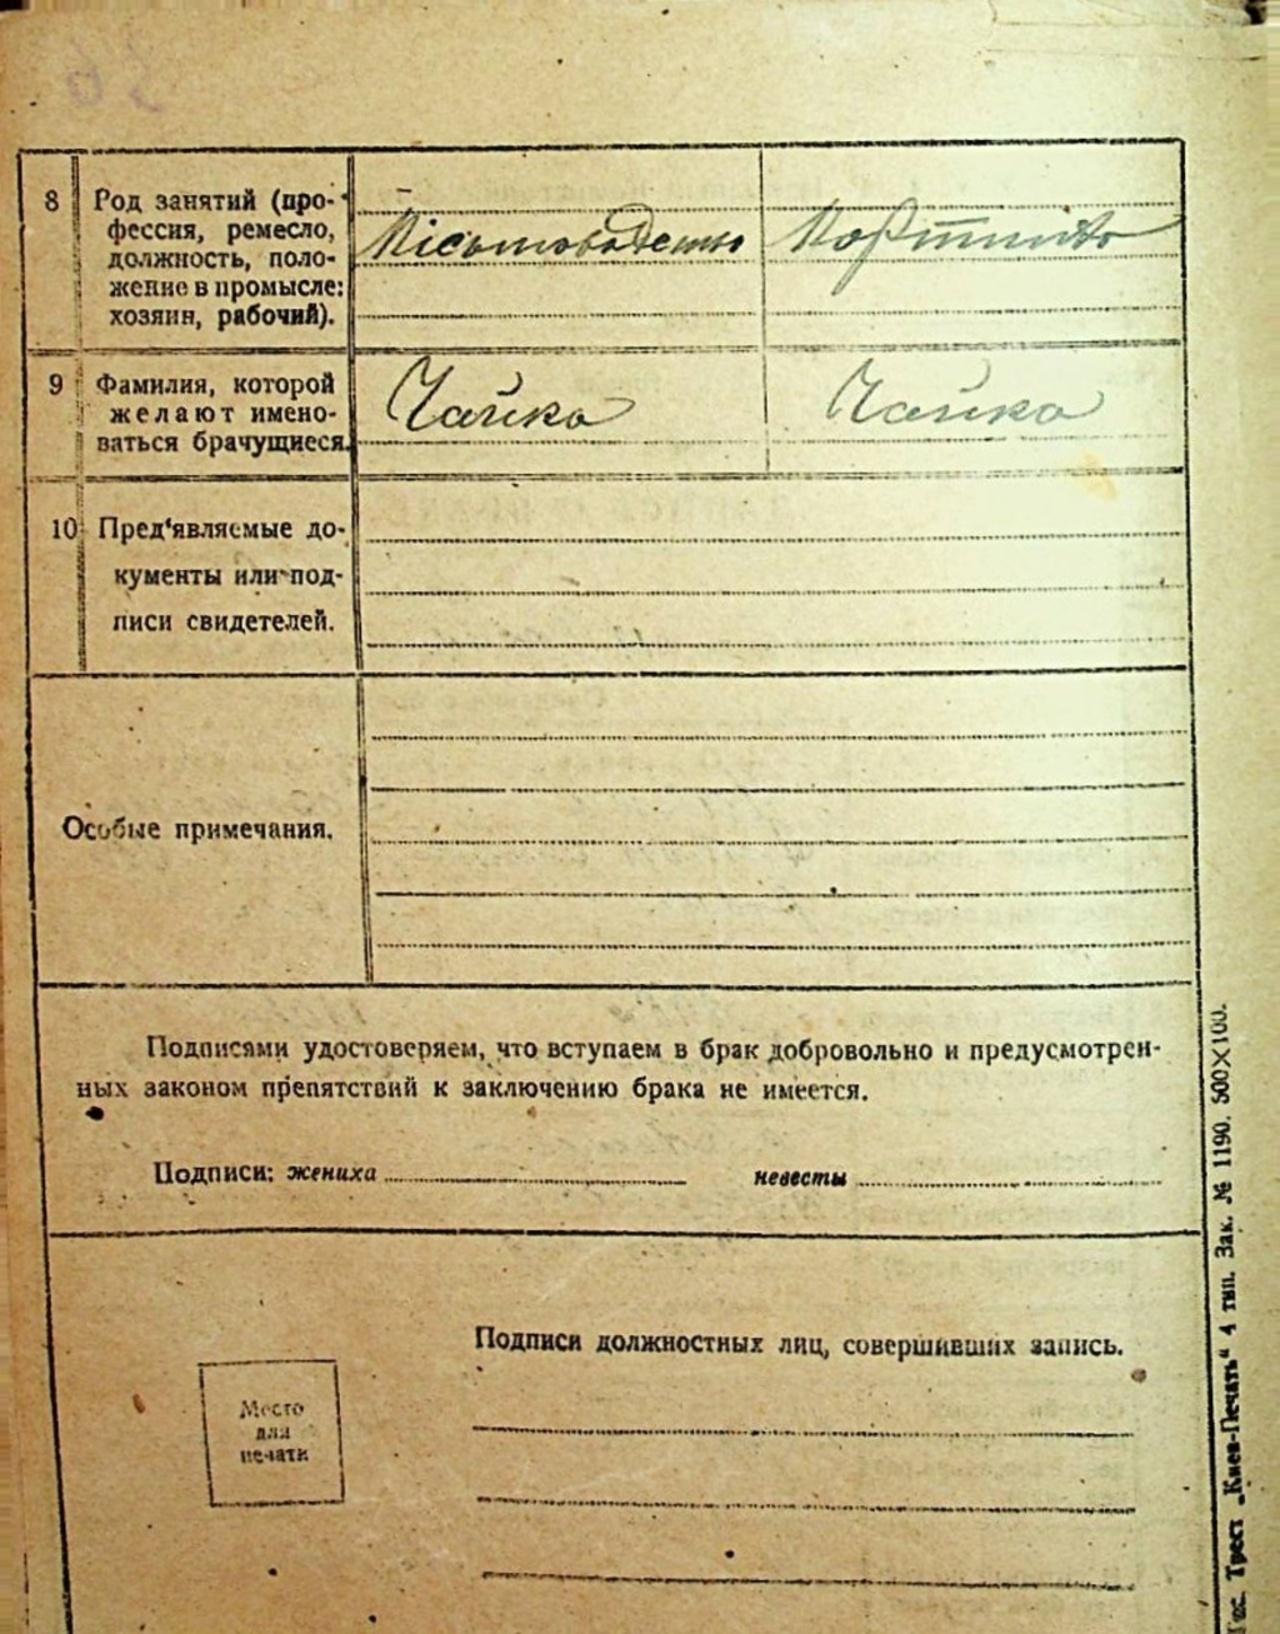 8 Род занятий (про-
фессия, ремесло,
должность, поло-
жение в промысле:
хозяин, рабочий).
Пісьмоводетль
9 Фамилия, которой
желают имено-
ваться брачущиеся.
Чайка Чайка
10 Пред‘являемые до-
кументы или под-
писи свидетелей.
Особые примечания.
Подписями удостоверяем, что вступаем в брак добровольно и предусмотрен-
ных законом препятствий к заключению брака не имеется.
Подписи: жениха невесты
Подписи должностных лиц, совершивших запись.
Место
для
печати
Гос. Трест „Киев-Печать“ 4 тип. Зак. № 1190. 500×100.